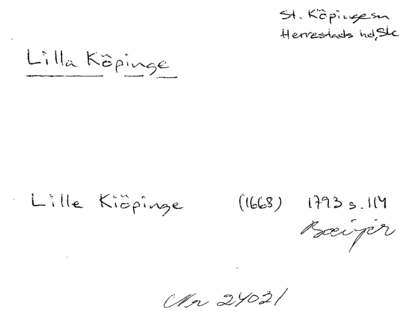 St. Köpinge sn
Herrestads hd, Sk
Lilla Köpinge
Lille Kiöpinge (1668) 1793 s. 114
Nr 24021